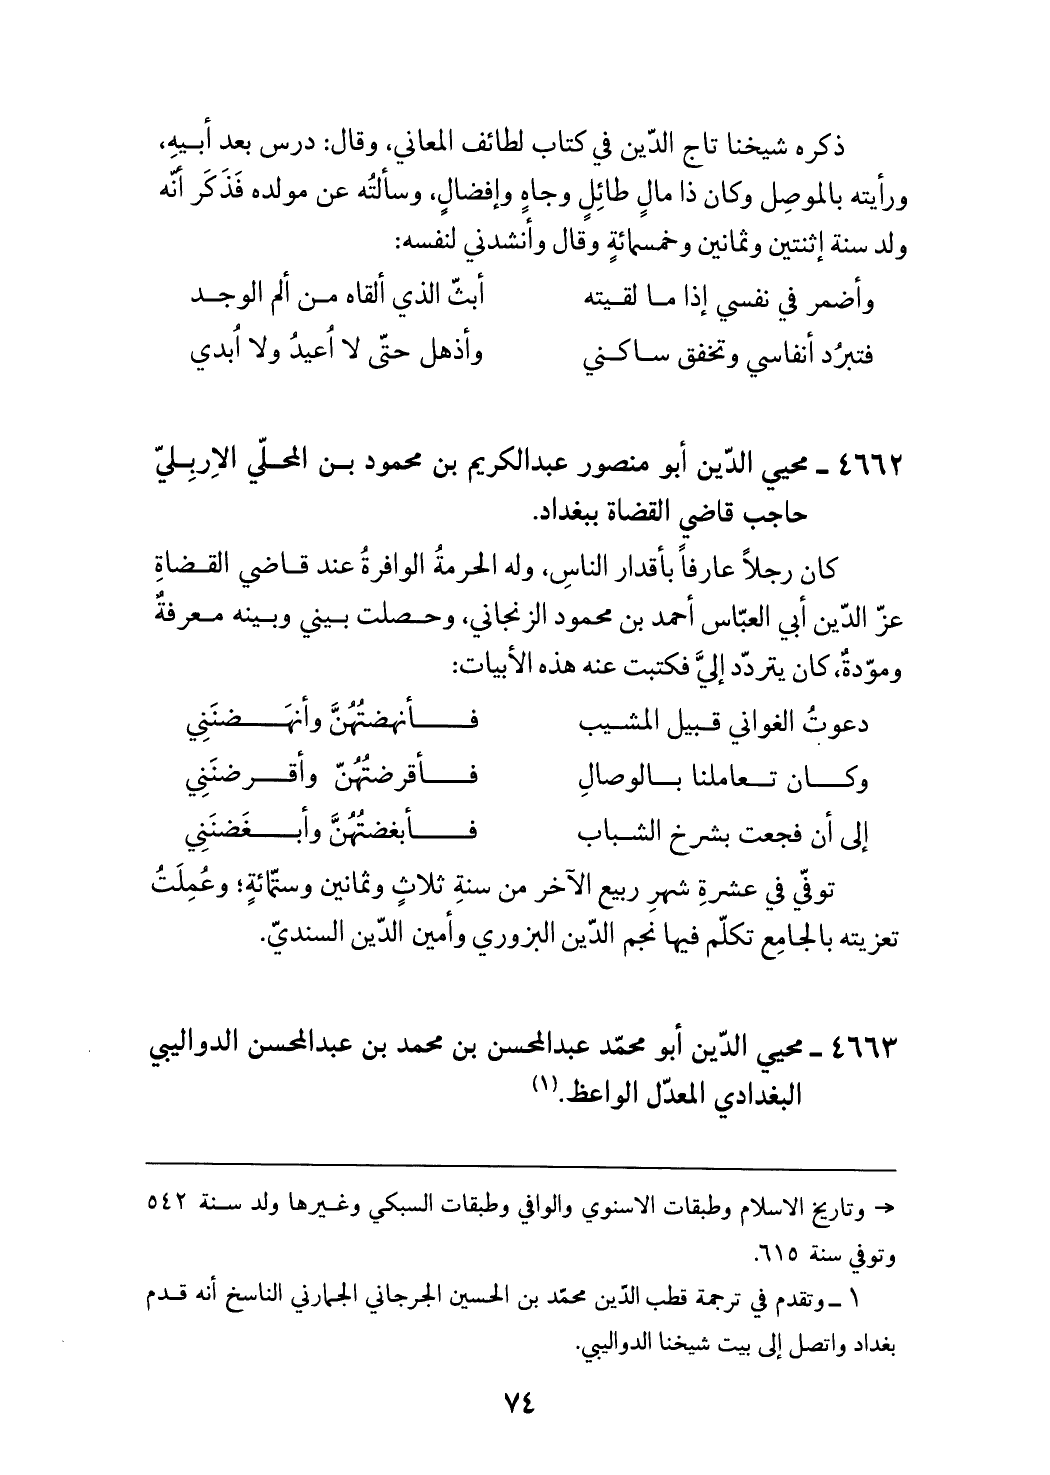 ذكره شيخنا تاج الدّين في كتاب لطائف المعاني، وقال: درس بعد أبيهِ،
ورأيته بالموصِل وكان ذا مالٍ طائِلٍ وجاهٍ وإفضالٍ، وسألتُه عن مولده فَذَكَر أنّه
ولد سنة إثنتين وثمانين وخمسمائةٍ وقال وأنشدني لنفسه:
وأضمر في نفسي إذا ما لقيته أبثّ الذي ألقاه من ألم الوجد
فتبرُد أنفاسي وتخفق ساكني وأذهل حتّى لا اُعيدُ ولا اُبدي
٤٦٦٢ ـ محيي الدّين أبو منصور عبدالكريم بن محمود بن المحلّي الاِربِليّ
حاجب قاضي القضاة ببغداد.
كان رجلاً عارفاً بأقدار الناسِ، وله الحرمةُ الوافرةُ عند قاضي القضاةِ
عزّ الدّين أبي العبّاس أحمد بن محمود الزنجاني، وحصلت بيني وبينه معرفةٌ
وموّدةٌ، كان يتردّد إليَّ فكتبت عنه هذه الأبيات:
دعوتُ الغواني قبيل المشيب فأنهضتُهُنَّ وأنهَضنَنِي
وكان تعاملنا بالوصالِ فأقرضتُهُنّ وأقرضنَنِي
إلى أن فجعت بشرخ الشباب فأبغضتُهُنَّ وأبغَضنَنِي
توفّي في عشرةِ شهرِ ربيع الآخر من سنةِ ثلاثٍ وثمانين وستّمائةٍ؛ وعُمِلَتُ
تعزيته بالجامِع تكلّم فيها نجم الدّين البزوري وأمين الدّين السنديّ.
٤٦٦٣ ـ محيي الدّين أبو محمّد عبدالمحسن بن محمد بن عبدالمحسن الدواليبي
البغدادي المعدّل الواعظ.(١)
→ وتاريخ الاسلام وطبقات الاسنوي والوافي وطبقات السبكي وغيرها ولد سنة ٥٤٢
وتوفي سنة ٦١٥.
١ ـ وتقدم في ترجمة قطب الدّين محمّد بن الحسين الجرجاني الجمارني الناسخ أنه قدم
بغداد واتصل إلى بيت شيخنا الدواليبي.
٧٤